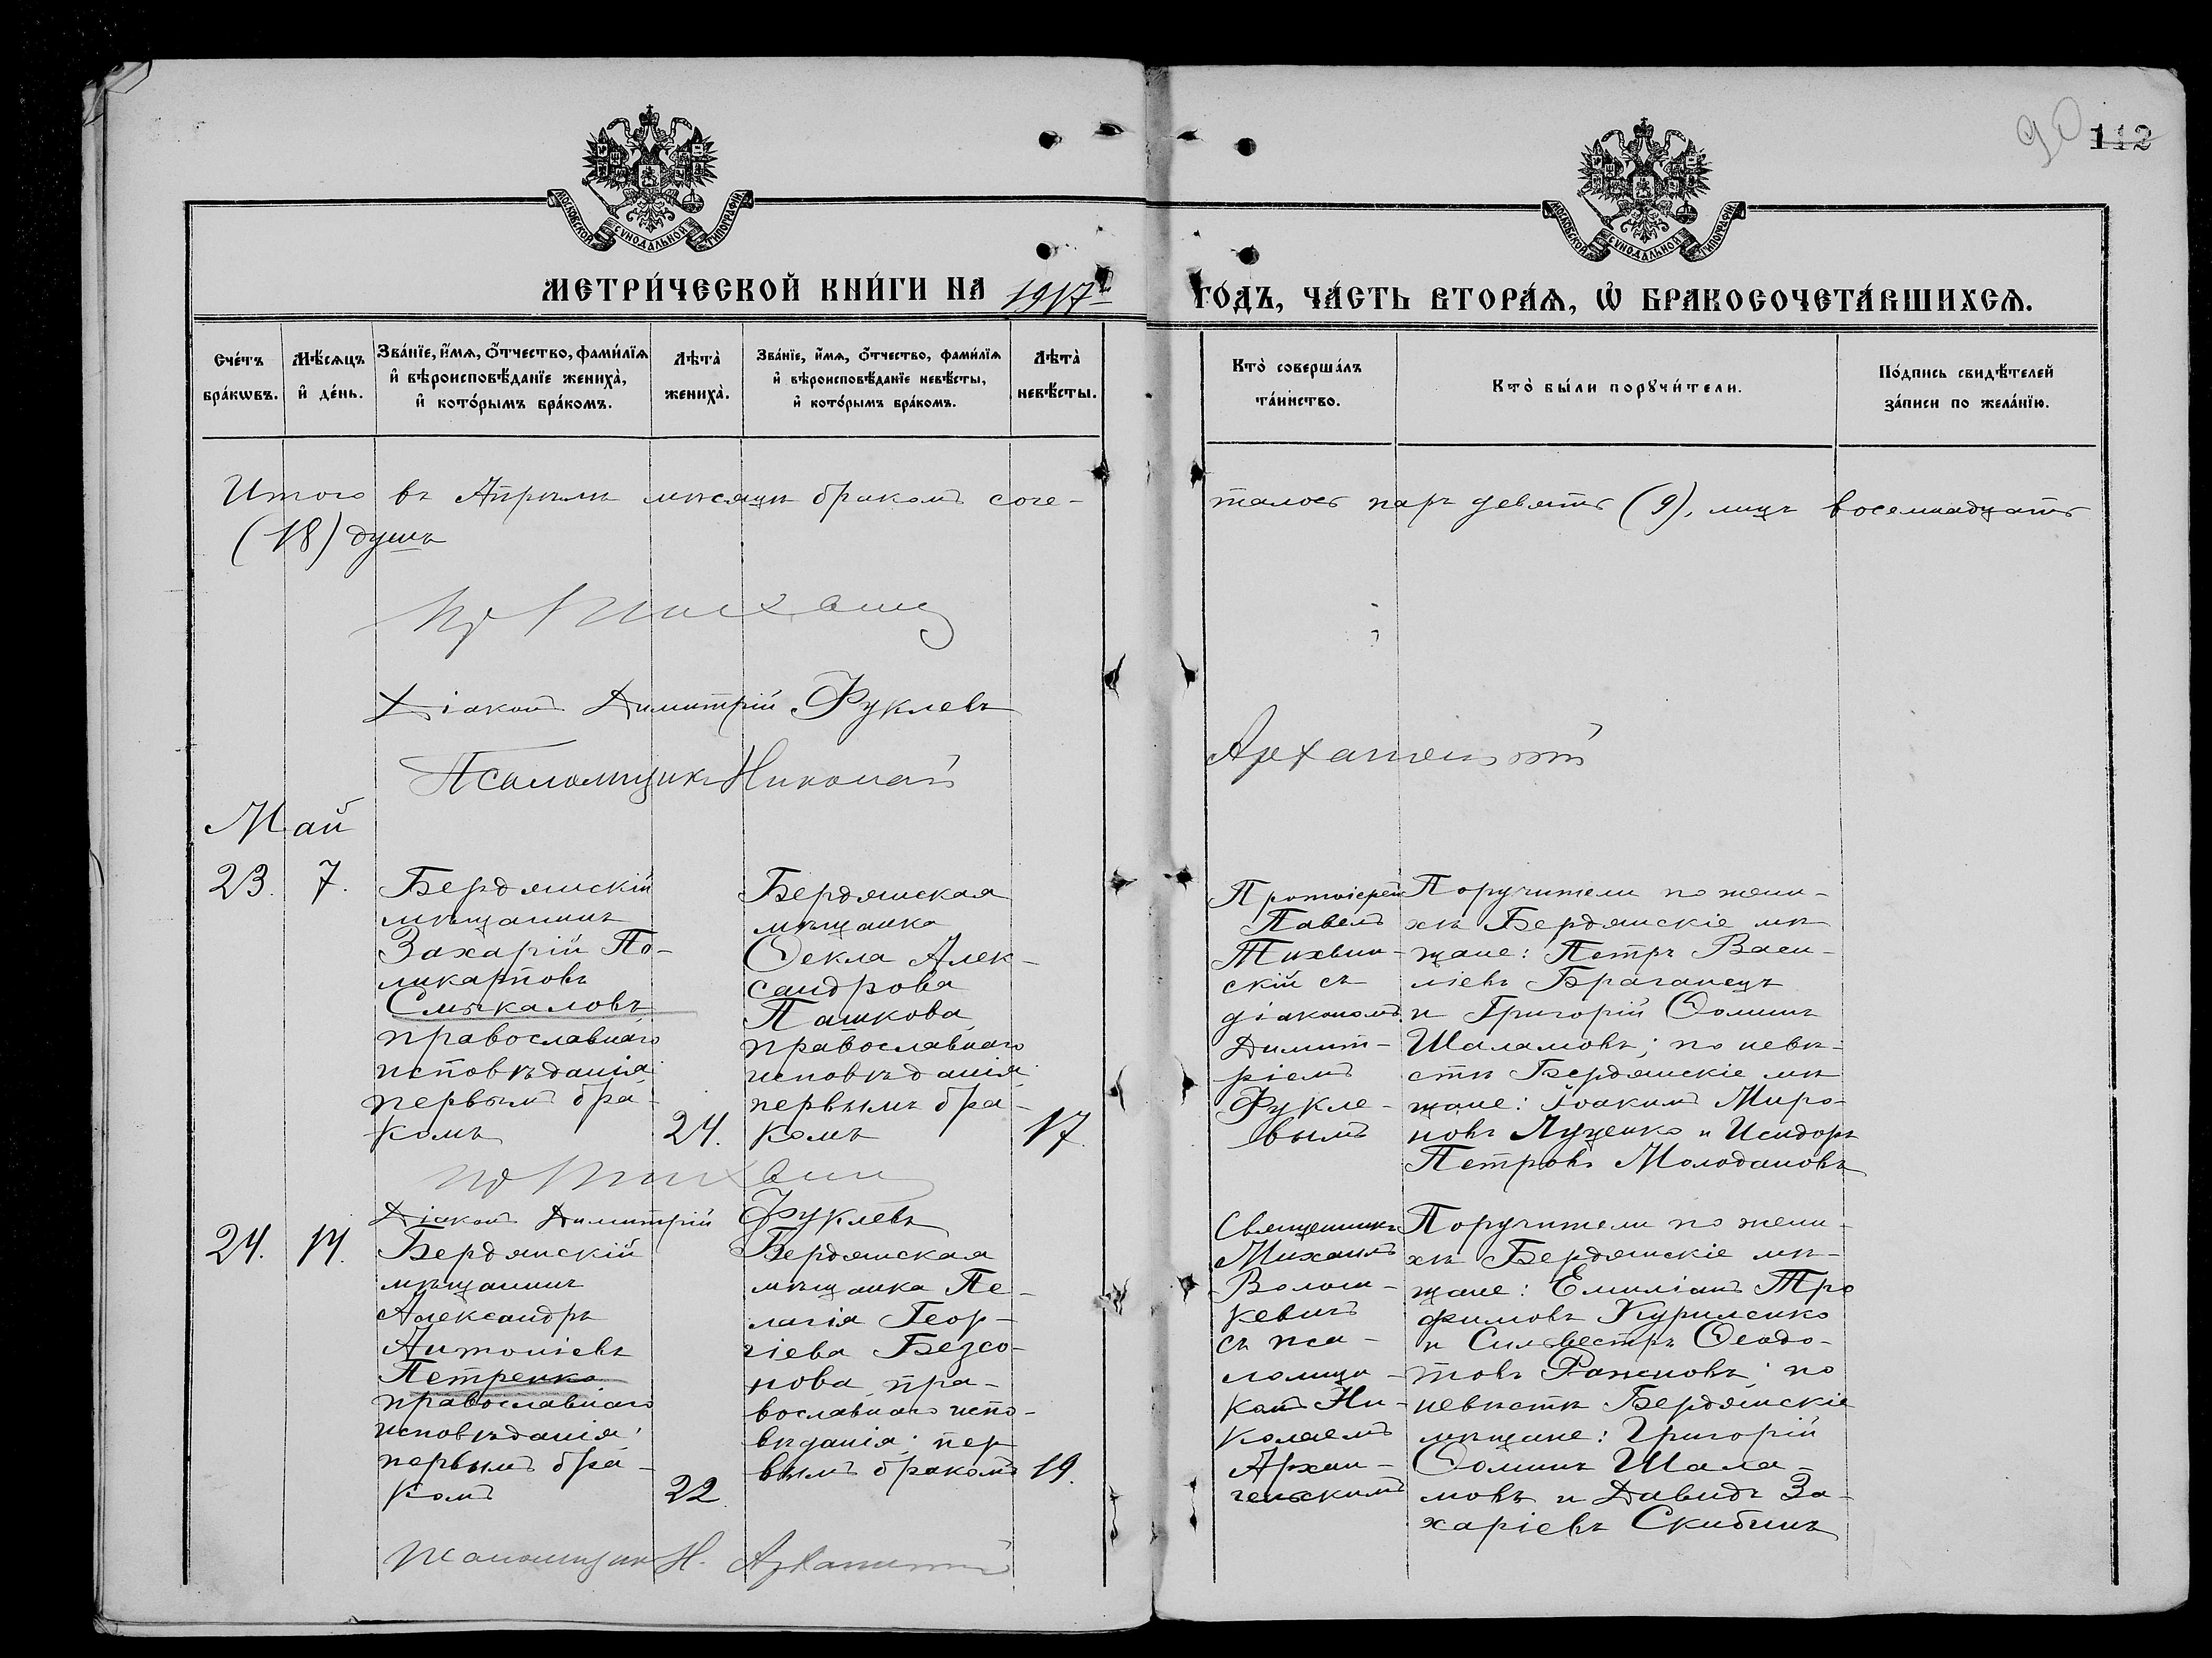 90 112
МОСКОВСКОЙ СѴНОДАЛЬНОЙ ТИПОГРАФІИ
МОСКОВСКОЙ СѴНОДАЛЬНОЙ ТИПОГРАФІИ
МЕТРИ́ЧЕСКОЙ КНИ́ГИ НА 1917 ГО́ДЪ, ЧА́СТЬ ВТОРА́Ѧ, Ѡ҆ БРАКОСОЧЕТА́ВШИХСѦ.
Сче́тъ
бра́кѡвъ.
Мѣ́сѧцъ
и҆ де́нь.
Зва́нїе, и҆́мѧ, ѻ҆́тчество, фами́лїѧ
и҆ вѣроисповѣ́данїе жениха̀,
и҆ кото́рымъ бра́комъ.
Лѣта̀
жениха̀.
Зва́нїе, и҆́мѧ, ѻ҆́тчество, фами́лїѧ
и҆ вѣроисповѣ́данїе невѣ́сты,
и҆ кото́рымъ бра́комъ.
Лѣта̀
невѣ́сты.
Кто̀ соверша́лъ
та́инство.
Кто̀ бы́ли порꙋчи́тели.
По́дпись свидѣ́телей
за́писи по жела́нїю.
Итого въ Апрѣлѣ мѣсяцѣ бракомъ соче-
талось паръ девять (9), лицъ восемнадцать
(18) душъ
Діаконъ Димитрій Фуклевъ
Псаломщикъ Николай
Архангельскій
Май
23. 7.
Бердянскій
мѣщанинъ
Захарій По-
ликарповъ
Смыкаловъ,
православнаго
исповѣданія,
первымъ бра-
комъ
24.
Бердянская
мѣщанка
Ѳекла Алек-
сандрова
Пашкова,
православнаго
исповѣданія,
первымъ бра-
комъ
17.
Протоіерей
Павелъ
Тихвин-
скій съ
діакономъ
Димит-
ріемъ
Фукле-
вымъ
Поручители по жени-
хѣ Бердянскіе мѣ
щане: Петръ Васи-
ліевъ Браганецъ
и Григорій Ѳоминъ
Шаламовъ; по невѣ-
стѣ Бердянскіе мѣ
щане: Іоакимъ Миро-
новъ Луценко и Исидоръ
Петровъ Молодановъ
Діаконъ Димитрій Фуклевъ
24. 14.
Бердянскій
мѣщанинъ
Александръ
Антоніевъ
Петренко
православнаго
исповѣданія;
первымъ бра-
комъ
22
Бердянская
мѣщанка Пе-
лагія Геор-
гіева Безсо-
нова, пра-
вославнаго испо-
вѣданія; пер
вымъ бракомъ
19.
Священникъ
Михаилъ
Волош-
кевичъ
съ пса-
ломщи-
комъ Ни-
колаемъ
Архан-
гельскимъ
Поручители по жени-
хѣ Бердянскіе мѣ-
щане: Емиліанъ Тро
фимовъ Куриленко
и Сильвестръ Ѳеодо-
товъ Раженовъ; по
невѣстѣ Бердянскіе
мѣщане: Григорій
Ѳоминъ Шала-
мовъ и Давидъ За-
харіевъ Скибинъ
Псаломщикъ Н. Архангельскій